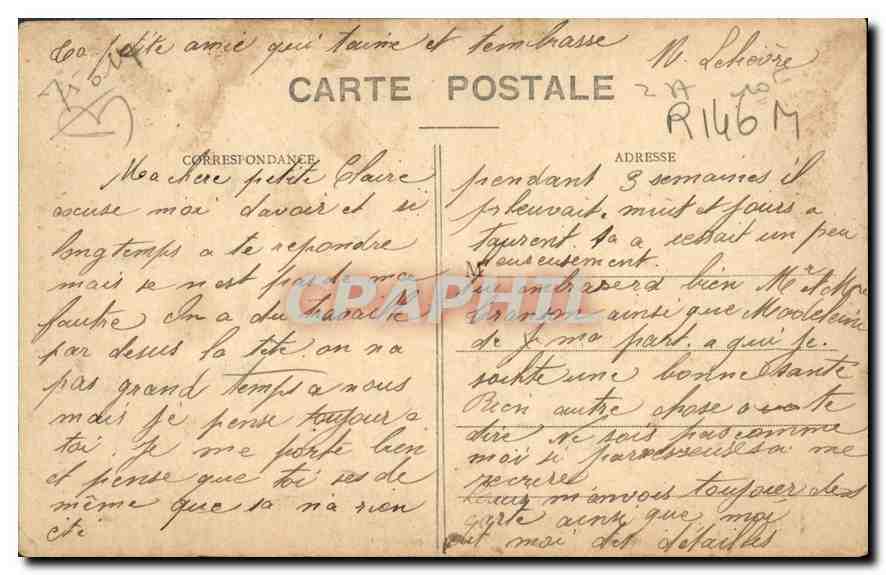 Ta ptite amie qui t'aime et t'embrasse
N. Lelièvre
CARTE POSTALE
R146M
CORRESPONDANCE
Ma chere petite Claire
excuse moi davoir et si
longtemps a te repondre
mais se n'est pas de ma
fautre On a du travaille
par desus la tete on na
pas grand temps a nous
mais je pense toujour a
toi. Je me porte bien
et pense que toi ses de
même que sa n'a rien
eté
ADRESSE
pendant 3 semaines il
pleuvait, nuit et jours a
taurent. sa a cessait un peu
eureusement.
M
tu mbrasera bien Mr et Mme
ainsi que Madeleine
de ma part. a qui je
souhte une bonne sante
Rien autre chose a te
dire Ne sois pas comme
moi si paresseuse sa me
recrire
m'anvois toujour des
carte ainsi que moi
et moi des détailles
CPAPHIL